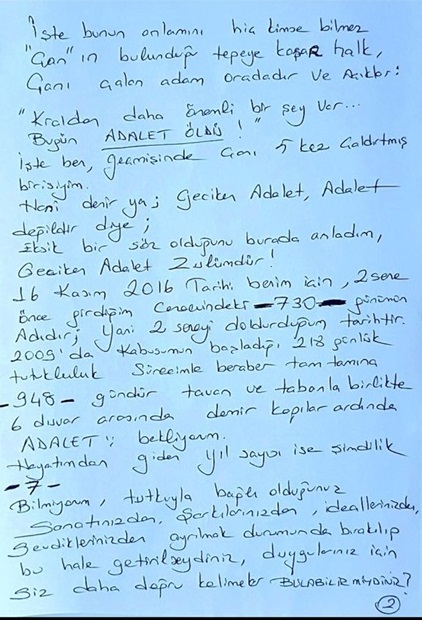 İşte bunun anlamını hiç kimse bilmez
"Çan"ın bulunduğu tepeye koşar halk,
Çanı çalan adam oradadır ve Açıklar:
"Kraldan daha önemli bir şey Var...
Bugün ADALET ÖLDÜ!"
İşte ben, geçmişinde Çanı 5 kez Çaldırtmış
birisiyim.
Hani denir ya; Geciken Adalet, Adalet
değildir diye;
Eksik bir söz olduğunu burada anladım,
Geciken Adalet Zulümdür!
16 Kasım 2016 Tarihi benim için, 2 sene
önce girdiğim Cenderindeki -730- günümün
Adıdır; Yani 2 seneyi doldurduğum tarihtir.
2009'da Kabusumun başladığı, 218 günlük
tutukluluk Sürecimle beraber tam tamına
-948- gündür tavan ve tabanla birlikte
6 duvar arasında demir kapılar ardında
ADALET'i bekliyorum.
Hayatımdan giden yıl sayısı ise şimdilik
-7-
Bilmiyorum, tutkuyla bağlı olduğunuz
Sanatınızdan, Şarkılarınızdan, ideallerinizden,
Sevdiklerinizden ayrılmak durumunda bırakılıp
bu hale getirilseydiniz, duygularınız için
Siz daha doğru kelimeler BULABİLİR MİYDİNİZ?
2